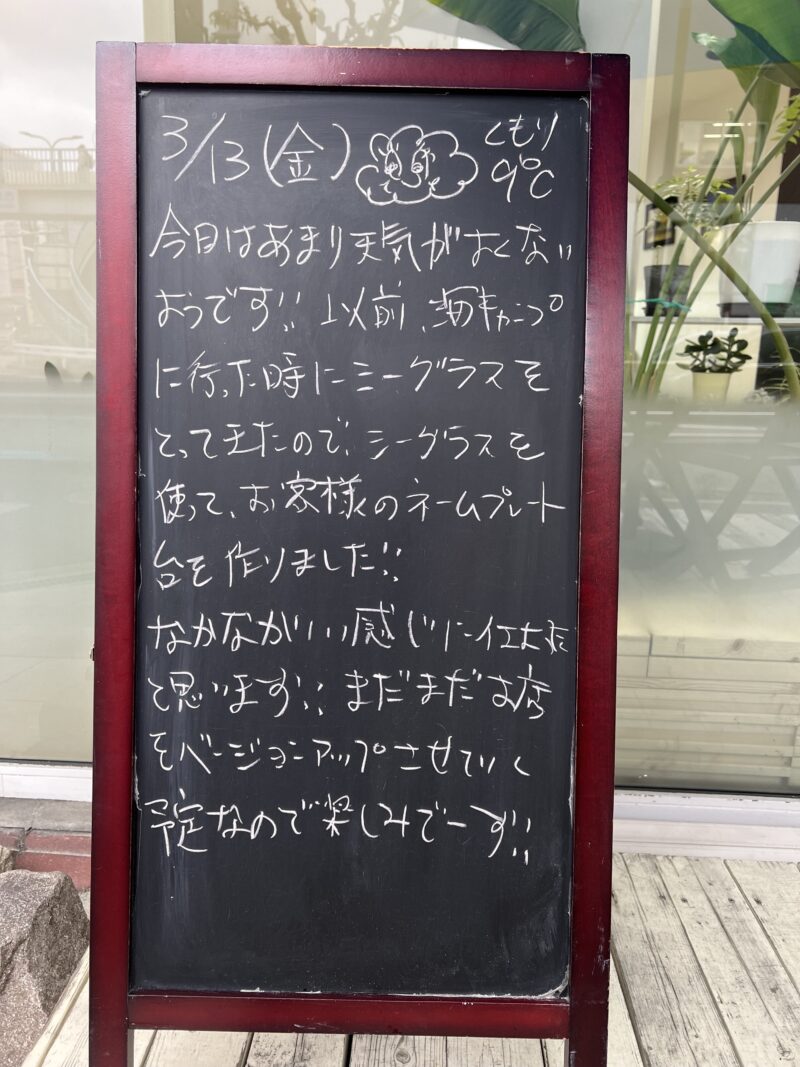 3/13(金) くもり 9℃
今日はあまり天気がよくない
ようです!! 以前、海キャンプ
に行った時にシーグラスを
とってきたので、シーグラスを
使って、お客様のネームプレート
台を作りました!!
なかなかいい感じに仕上がた
と思います!! まだまだお店
をバージョンアップさせていく
予定なので楽しみでーす!!